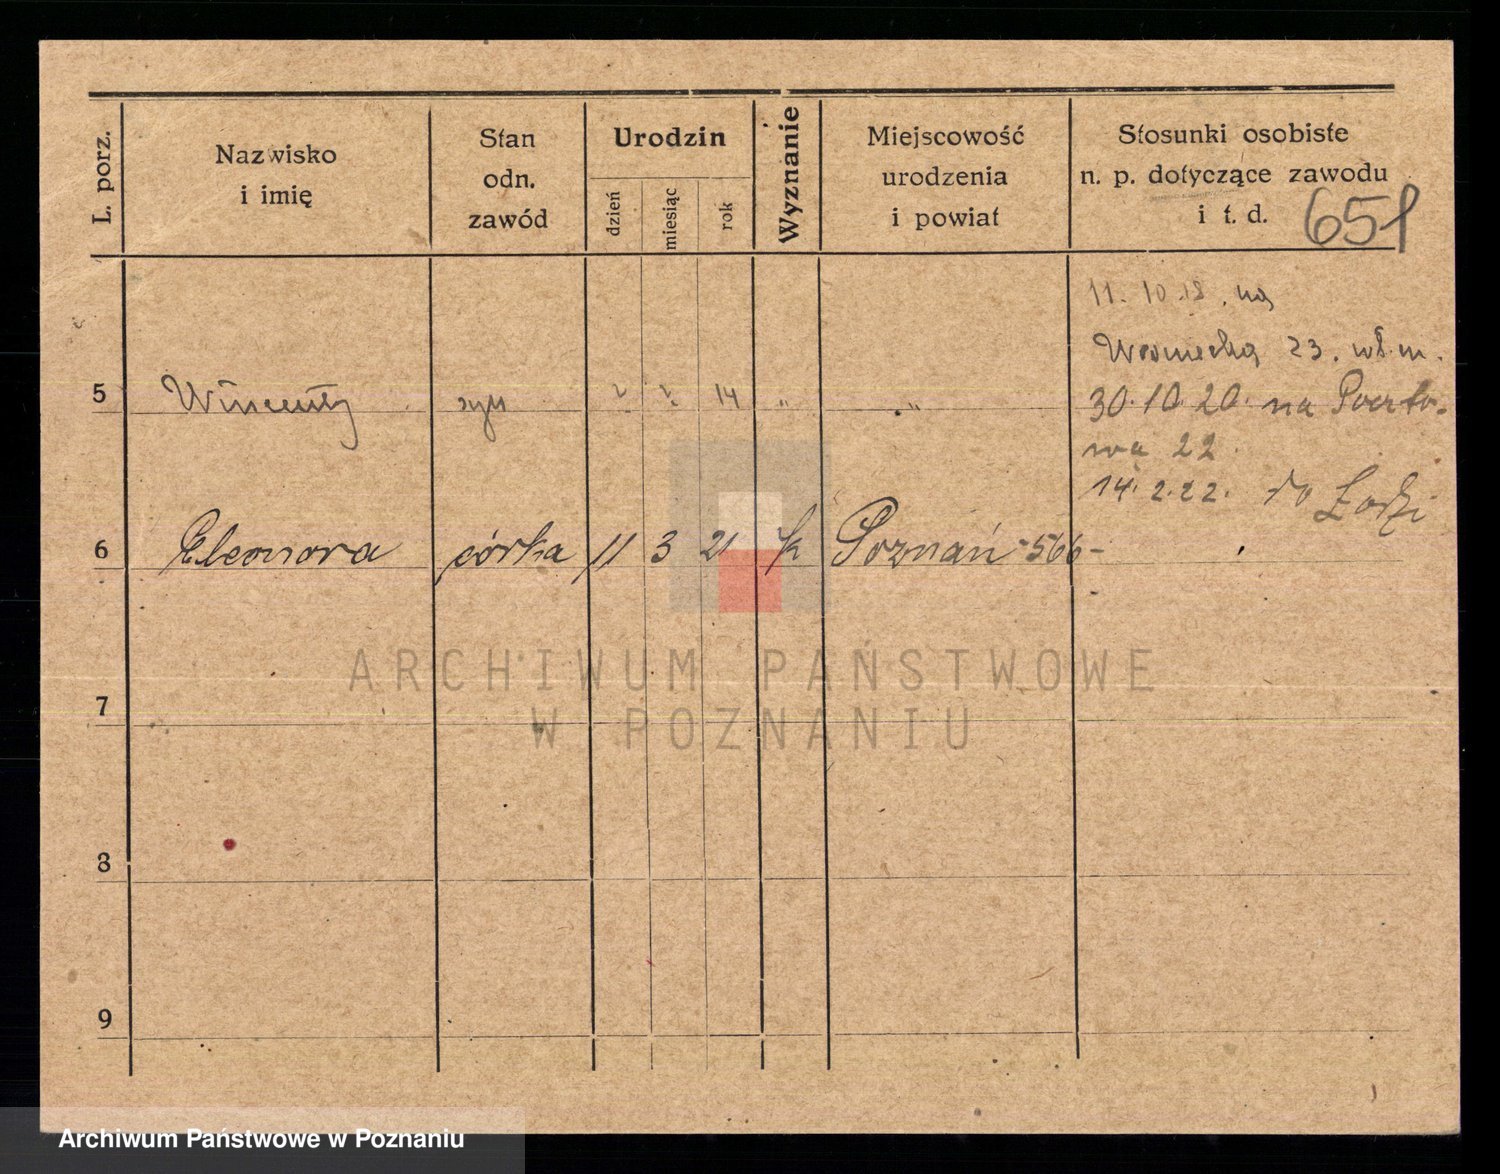 L. porz.
Nazwisko
i imię
Stan
odn.
zawód
Urodzin
dzień
miesiąc
rok
Wyznanie
Miejscowość
urodzenia
i powiat
Stosunki osobiste
n. p. dotyczące zawodu
i t. d.
651
11. 10. 18. na
23.
5 Wincenty syn 14 " "
30. 10. 20. na Poczto-
wa 22
14. 2. 22. do Łodzi
6 Eleonora córka 11 3 21 k Poznań -566-
ARCHIWUM PAŃSTWOWE
W POZNANIU
7
8
9
Archiwum Państwowe w Poznaniu